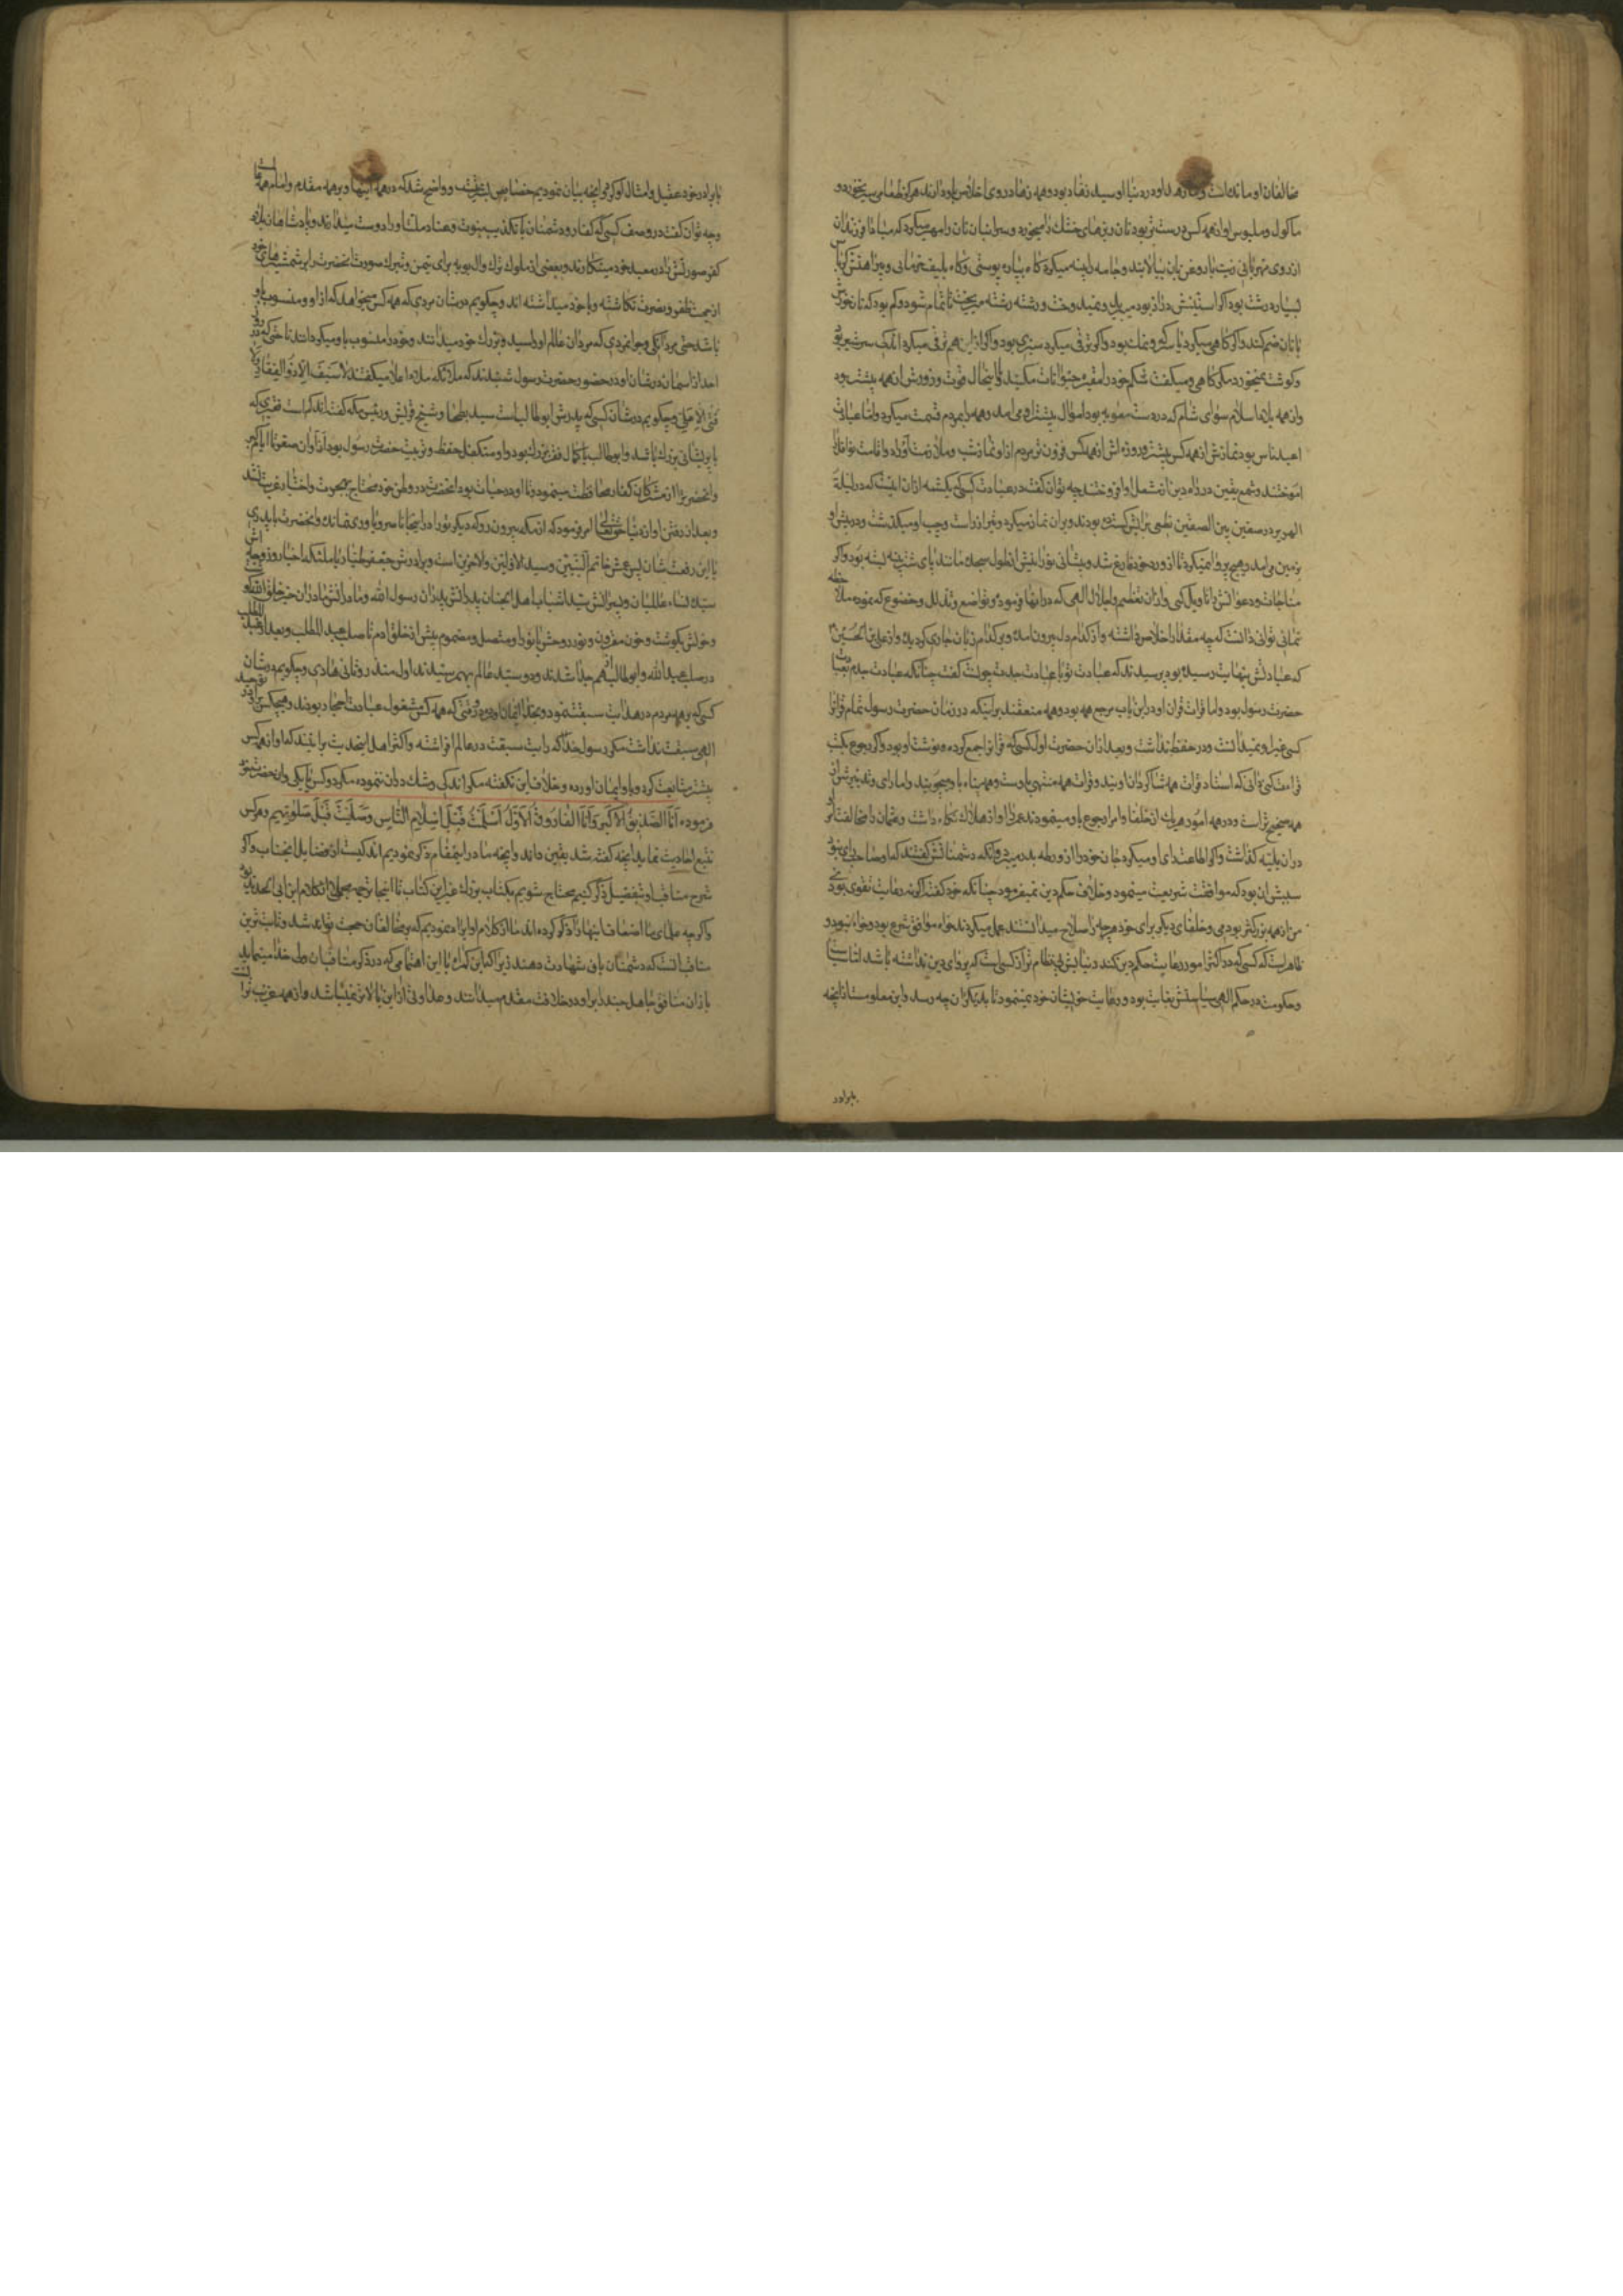 مخالفان او مانده است و اما زهد او در دنیا او سید زهاد بود و همه زهاد روی اخلاص باو دارند هرگز طعامی سیر نخورد و
ماکول و ملبوس او از همه کس درشت‌تر بود نان ریزهای خشک را میخورد و سر انبان نان را مهر میکرد که مبادا فرزندان
از روی مهربانی زیت یا روغن بان بیالایند و جامه را پینه میکرد گاه بپاره پوستی و گاه بلیف خرمائی و پیراهنش کرباس
بسیار درشت بود اگر آستینش دراز بود میبرید و نمیدوخت و رشته رشته میریخت تا تمام شود و کم بود که نان خورش
با نان ضم کند و اگر گاهی میکرد یا سرکه و نمک بود و اگر ترقی میکرد سبزی بود و اگر ازین هم ترقی میکرد اندک شیر شتر بود
و گوشت نمیخورد مگر گاهی و میگفت شکم خود را مقبره حیوانات مکنید و با اینحال قوت و زورش از همه بیشتر بود
و از همه بلاد اسلام سوای شام که در دست معویه بود اموال بیشتر از وی آمد و همه را بمردم قسمت میکرد و اما عبادت
اعبد ناس بود نمازش از همه کس بیشتر و روزه‌اش از همه کس فزون‌تر مردم ازو نماز شب و ملازمت اوراد و اقامت نوافل را
آموختند و شمع یقین در راه دین از مشعل او افروختند چه توان گفت در عبادت کسی که یکشمه از ان اینست که در لیلة
الهریر در صفین بین الصفین نطعی برایش گسترده بودند و بر ان نماز میکرد و تیر از راست و چپ او میگذشت و در پیش او
بزمین می‌آمد و هیچ پروا نمیکرد تا از ورد خود فارغ شد و پیشانی نورانیش از طول سجده مانند پای شتر پینه بسته بود و اگر
مناجات و دعواتش را تاویل کنی و از ان تعظیم و اجلال الهی که در انها فرموده و تواضع و تذلل و خضوع که نموده ملاحظه
نمائی توانی دانست که چه مقدار اخلاص داشته و از کدام دل بیرون آمده و بر کدام زبان جاری گردیده و از علی بن الحسین
که عبادتش بنهایت رسیده بود پرسیدند که عبادت تو با عبادت جدت چونست گفت چنانکه عبادت جدم بعبادت
حضرت رسول بود و اما قرائت قران او در این باب مرجع همه بود و همه متفقند بر اینکه در زمان حضرت رسول تمام قرانرا
کسی غیر او نمیدانست و در حفظ نداشت و بعد از ان حضرت اول کسی که قرانرا جمع کرده و نوشت او بود و اگر رجوع بکتب
قراءت کنی بدانی که استاد قرائت همه شاگردان اویند و قرائت همه منتهی باوست و همه پناه باو میجویند و اما رای و تدبیرش از
همه صحیح‌تر است و در همه امور هریک از خلفا و امرا رجوع باو مینمودند عمر را او از هلاک نگاه داشت و عثمان را مخالفت او
در ان بلیه گذاشت و اگر اطاعت رای او میکرد جان خود را از ورطه بدر میبرد و انکه دشمنانش گفتند که او صاحب رای نبود
سببش ان بود که موافقت شریعت مینمود و خلاف حکم دین نمیفرمود چنانکه خود گفت اگر نه رعایت تقوی بودی
من از همه بزرگتر بودمی و خلفای دیگر برای خود هرچه را صلاح میدانستند عمل میکردند خواه موافق شرع بود و خواه نبود و
ظاهر است که کسی که در اکثر امور رعایت حکم دین کند دنیایش بی‌نظام‌تر از کسی است که پروای دین نداشته باشد اما سیاست
و حکومت در حکم الهی سیاستش بغایت بود و رعایت خویشان خود نمینمود تا بدیگران چه رسد و این معلومست از انچه
ببرادر
با برادر خود عقیل و امثال او کرد و انچه بیان نمودیم خصایص بشریست و واضح شد که در همه اینها او بر همه مقدم و امام همه است
و چه توان گفت در وصف کسی که کفار و دشمنان با تکذیب بنبوت و عناد ملت او را دوست میدارند و پادشاهان بلاد
کفر صورتش را در معبد خود مینگارند و بعضی از ملوک ترک و ال بویه برای تیمن و تبرک صورت انحضرت را بر شمشیرهای خود
از جهت ظفر و نصرت نگاشته و با خود میداشته‌اند و چگویم در شان مردی که همه کس میخواهد که از او و منسوب باو
باشد حتی مردانگی و جوانمردی که مردان عالم او را سید و بزرگ خود میدانند و خود را منسوب باو میکردانند تا حتی که در روز
احد از اسمان در شان او در حضور حضرت رسول شنیدند که ملائکه ملاء اعلا میگفتند لا سیف الا ذو الفقار و لا
فتی الا علی و چگویم در شان کسی که پدرش ابوطالب است سید بطحا و شیخ قریش و رئیس مکه گفته‌اند کم است فقیری که
با پریشانی بزرگ باشد و ابوطالب با کمال فقر بزرگ بود و او متکفل حفظ و تربیت حضرت رسول بود از اوان صغر تا ایام کبر
و انحضرت را از مشرکان و کفار محافظت مینمود و تا او در حیات بود انحضرت در وطن خود محتاج بهجرت و اختیار غربت نشد
و بعد از رفتن او از دنیا حق تعالی امر فرمود که از مکه بیرون رو که دیگر تو را در اینجا ناصر و یاوری نماند و انحضرت با پدری
با این رفعت شان پسر عمش خاتم النبیین و سید الاولین و الاخرین است و برادرش جعفر طیار با ملئکه اخیار و زوجه‌اش
سیده نساء عالمیان و پسرانش سید شباب اهل الجنان پدرانش پدران رسول الله و مادرانش مادران خیر خلق الله و
و خونش بگوشت و خون مقرون و نور و روحش با نور او متصل و مضموم پیش از خلق ادم تا صلب عبد المطلب و بعد از عبد المطلب
در صلب عبد الله و ابوطالب از هم جدا شدند و دو سید عالم بهم رسیدند اول منذر و ثانی هادی و چگویم در شان
کسی که بر همه مردم در هدایت سبقت نمود و بخدا ایمان اورد در وقتی که همه کس مشغول عبادت احجار بودند و هیچکس در توحید
الهی سبقت نداشت مگر رسول خدا که رایت سبقت در عالم افراشته و اکثر اهل حدیث برانند که او از همه کس
پیشتر متابعت کرده و باو ایمان اورده و خلاف این نگفته مگر اندکی و شک در ان ننموده مگر دو کس یا یکی و ان حضرت خود
فرموده أنا الصدیق الاکبر و أنا الفاروق الاول أسلمت قبل إسلام الناس و صلیت قبل صلوتهم و هر کس
تتبع احادیث نماید انچه گفته شد یقین داند و انچه ما در اینمقام ذکر نمودیم اندکیست از فضایل انجناب و اگر
شرح مناقب او بتفصیل ذکر کنیم محتاج شویم بکتاب بزرگ غیر این کتاب تا اینجا ترجمه مجملی از کلام ابن ابی الحدید بود
و اگر چه علمای ما اضعاف اینها را ذکر کرده‌اند ما از کلام او ایراد نمودیم که بر مخالفان حجت تواند شد و ثابت‌ترین
مناقب انست که دشمنان بان شهادت دهند زیرا که این گمراه با این اهتمامی که در ذکر مناقب ان ولی خدا مینماید
باز ان منافق جاهل چند را بر او در خلافت مقدم میدانند و عداوتی از این بالاتر نمیباشد و از همه غریب‌تر انست